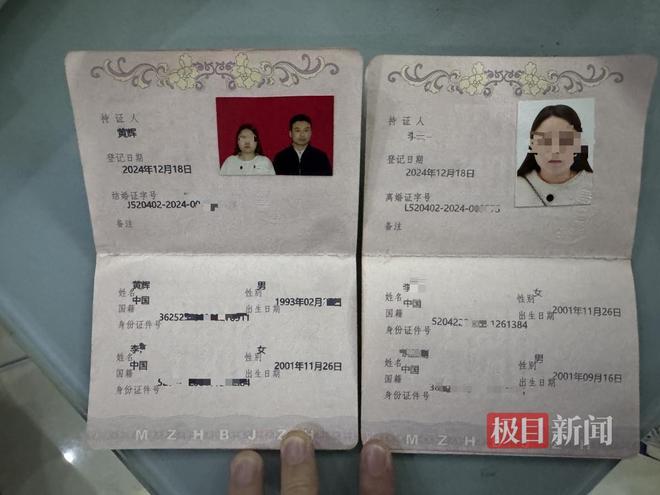 持证人
黄辉
登记日期
2024年12月18日
结婚证字号
J520402-2024-00
备注
姓名 黄辉 性别 男
国籍 中国 出生日期 1993年02月
身份证件号
姓名 李 性别 女
国籍 中国 出生日期 2001年11月26日
身份证件号
MZHBJZH
持证人
李
登记日期
2024年12月18日
离婚证字号
L520402-2024-00
备注
姓名 李 性别 女
国籍 中国 出生日期 2001年11月26日
身份证件号
姓名 性别 男
国籍 中国 出生日期 2001年09月16日
身份证件号
MZH
极目新闻